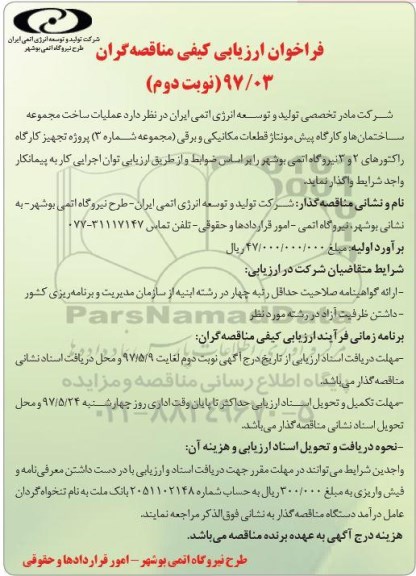 شرکت تولید و توسعه انرژی اتمی ایران
طرح نیروگاه اتمی بوشهر
فراخوان ارزیابی کیفی مناقصه‌گران
۹۷/۰۳ (نوبت دوم)
شرکت مادر تخصصی تولید و توسعه انرژی اتمی ایران در نظر دارد عملیات ساخت مجموعه
ساختمان‌ها و کارگاه پیش مونتاژ قطعات مکانیکی و برقی (مجموعه شماره ۳) پروژه تجهیز کارگاه
راکتورهای ۲ و ۳ نیروگاه اتمی بوشهر را بر اساس ضوابط و از طریق ارزیابی توان اجرایی کار به پیمانکار
واجد شرایط واگذار نماید.
نام و نشانی مناقصه‌گذار: شرکت تولید و توسعه انرژی اتمی ایران- طرح نیروگاه اتمی بوشهر- به
نشانی بوشهر، نیروگاه اتمی - امور قراردادها و حقوقی- تلفن تماس ۳۱۱۱۷۱۴۷-۰۷۷
برآورد اولیه: مبلغ ۴۷/۰۰۰/۰۰۰/۰۰۰ ریال
شرایط متقاضیان شرکت در ارزیابی:
- ارائه گواهینامه صلاحیت حداقل رتبه چهار در رشته ابنیه از سازمان مدیریت و برنامه‌ریزی کشور
- داشتن ظرفیت آزاد در رشته مورد نظر
برنامه زمانی فرآیند ارزیابی کیفی مناقصه‌گران:
-مهلت دریافت اسناد ارزیابی از تاریخ درج آگهی نوبت دوم لغایت ۹۷/۵/۹ و محل دریافت اسناد نشانی
مناقصه گذار می‌باشد.
-مهلت تکمیل و تحویل اسناد ارزیابی حداکثر تا پایان وقت اداری روز چهارشنبه ۹۷/۵/۲۴ و محل
تحویل اسناد نشانی مناقصه‌گذار می‌باشد.
-نحوه دریافت و تحویل اسناد ارزیابی و هزینه آن:
واجدین شرایط می‌توانند در مهلت مقرر جهت دریافت اسناد و ارزیابی با در دست داشتن معرفی‌نامه و
فیش واریزی به مبلغ ۳۰۰/۰۰۰ ریال به حساب شماره ۲۰۵۱۱۰۲۱۴۸ بانک ملت به نام تنخواه‌گردان
عامل درآمد دستگاه مناقصه‌گذار به نشانی فوق‌الذکر مراجعه نمایند.
هزینه درج آگهی به عهده برنده مناقصه می‌باشد.
طرح نیروگاه اتمی بوشهر - امور قراردادها و حقوقی
ParsNamadData
پایگاه اطلاع رسانی مناقصه و مزایده